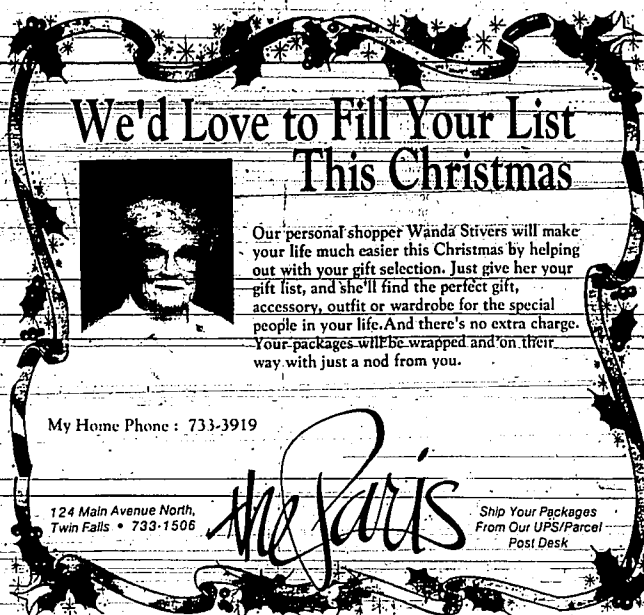 We'd Love to Fill Your List
This Christmas
Our personal shopper Wanda Stivers will make
your life much easier this Christmas by helping
out with your gift selection. Just give her your
gift list, and she'll find the perfect gift,
accessory, outfit or wardrobe for the special
people in your life. And there's no extra charge.
Your packages will be wrapped and on their
way with just a nod from you.
My Home Phone : 733-3919
the Paris
124 Main Avenue North,
Twin Falls • 733-1506
Ship Your Packages
From Our UPS/Parcel
Post Desk